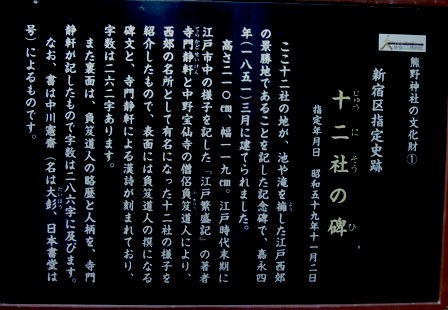 熊野神社の文化財①
新宿区指定史跡
じゅうにそうひ
十二社の碑
指定年月日 昭和五十九年十一月二日
ここ十二社の地が、池や滝を擁した江戸西郊
の景勝地であることを記した記念碑で、嘉永四
年(一八五一)三月に建てられました。
高さ二一〇㎝、幅一一九㎝。江戸時代末期に
江戸市中の様子を記した「江戸繁盛記」の著者
寺門静軒と中野宝仙寺の僧侶負笈道人により、
西郊の名所として有名になった十二社の様子を
紹介したもので、表面には負笈道人の撰になる
碑文と、寺門静軒による漢詩が刻まれており、
字数は二六二字あります。
また裏面は、負笈道人の略歴と人柄を、寺門
静軒が記したもので字数は二八六字に及びます。
なお、書は中川憲齋(名は大彭、日本書堂は
号)によるものです。